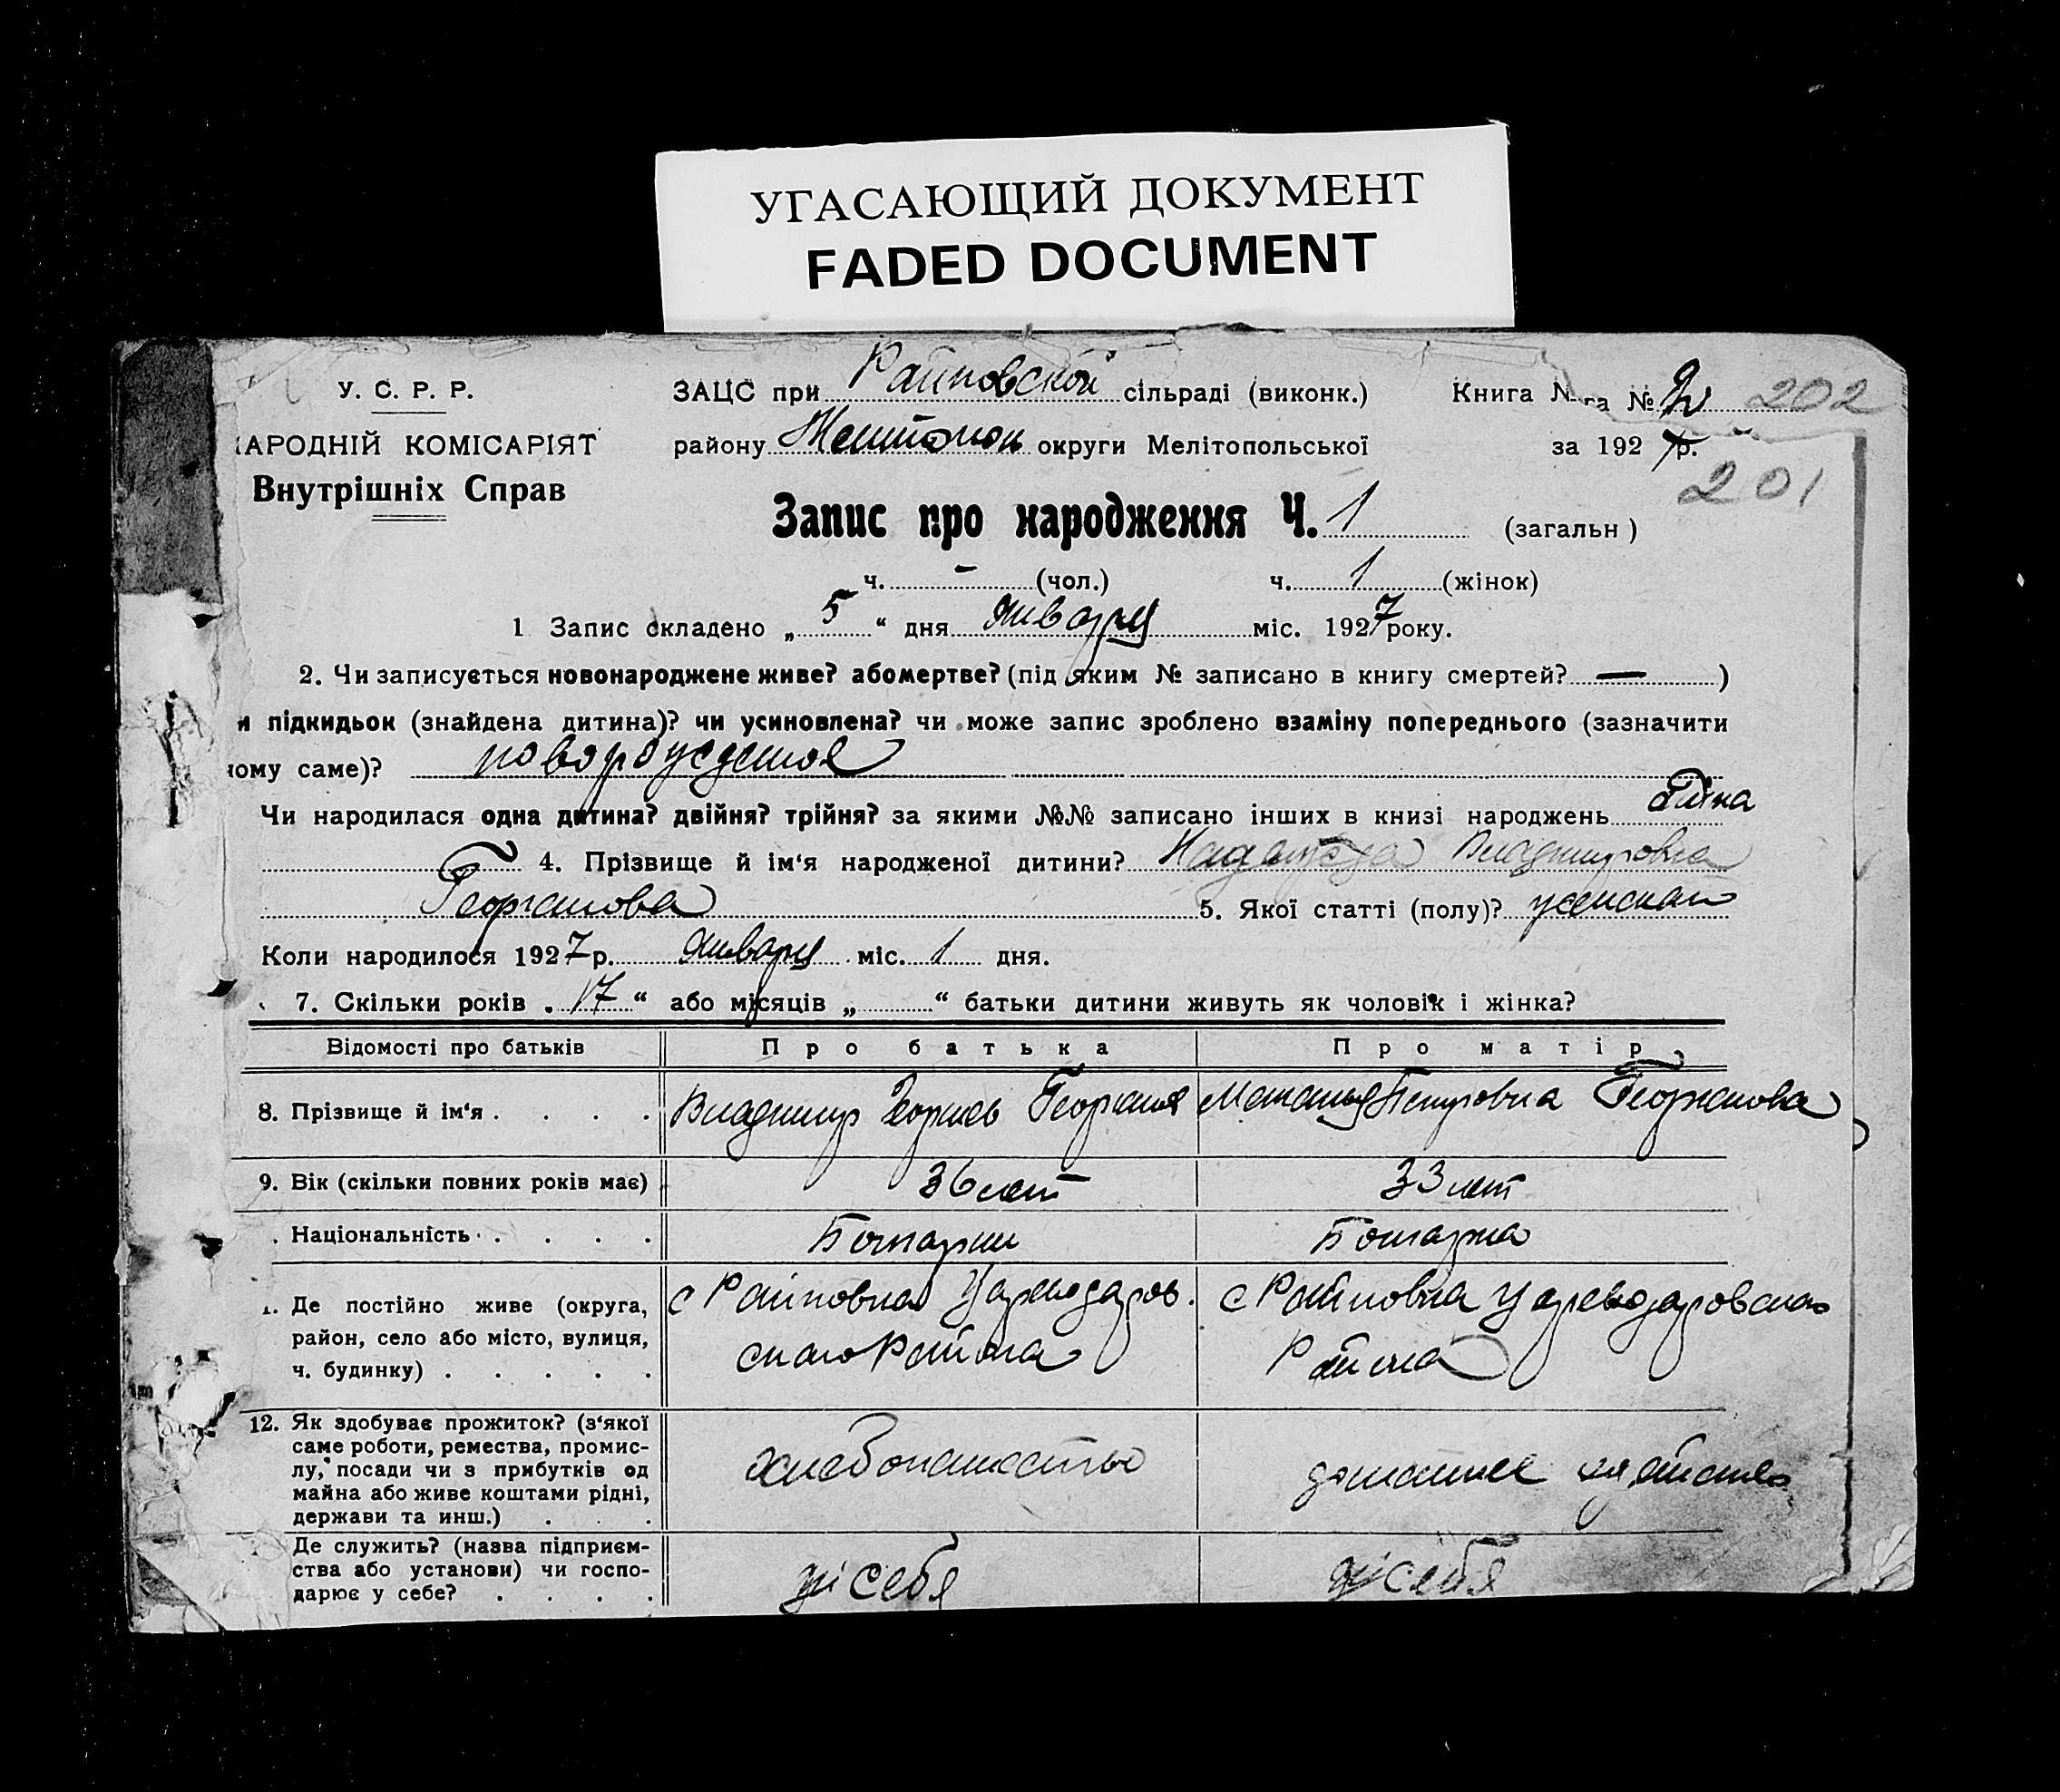 УГАСАЮЩИЙ ДОКУМЕНТ
FADED DOCUMENT
У. С. Р. Р.
ЗАЦС при Райновской сільраді (виконк.)
Книга № га № 202
АРОДНІЙ КОМІСАРІЯТ
району округи Мелітопольської
за 1927 р.
Внутрішніх Справ
201
Запис про народження Ч. 1 (загальн )
ч. - (чол.) ч. 1 (жінок)
1 Запис складено „ 5 “ дня января міс. 1927 року.
2. Чи записується новонароджене живе? або мертве? (під яким № записано в книгу смертей? — )
и підкидьок (знайдена дитина)? чи усиновлена? чи може запис зроблено взаміну попереднього (зазначити
ному саме)? новорожденая
Чи народилася одна дитина? двійня? трійня? за якими №№ записано інших в книзі народжень одна
4. Прізвище й ім‘я народженої дитини? Надежда Владимировна
Георганова 5. Якої статті (полу)? женская
Коли народилося 1927 р. января міс. 1 дня.
7. Скільки років „ 17 “ або місяців „ “ батьки дитини живуть як чоловік і жінка?
Відомості про батьків Про батька Про матір
8. Прізвище й ім‘я . . . . Владимир Мелания Петровна Георганова
9. Вік (скільки повних років має) 36 лет 33 лет
. Національність . . . . Болгарин Болгарка
1. Де постійно живе (округа,
район, село або місто, вулиця,
ч. будинку) . . . . .
с Райновка Цареводаров.
скаго Района
с Райновка Цареводаровскаго
Района
12. Як здобуває прожиток? (з‘якої
саме роботи, ремества, промис-
лу, посади чи з прибутків од
майна або живе коштами рідні,
держави та инш.) . . .
хлебопашество
домашнее хозяйство
Де служить? (назва підприєм-
ства або установи) чи госпо-
дарює у себе? . . . .
у себя
у себя